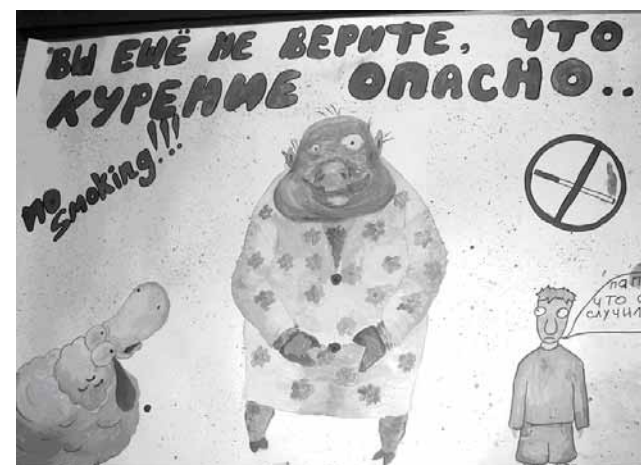 ВЫ ЕЩЁ НЕ ВЕРИТЕ, ЧТО
КУРЕНИЕ ОПАСНО..
no
smoking!!!
пап
что
случил